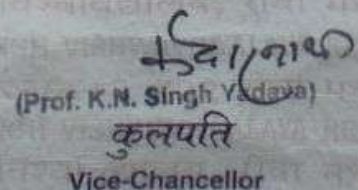 (Prof. K.N. Singh Yadava)
कुलपति
Vice-Chancellor